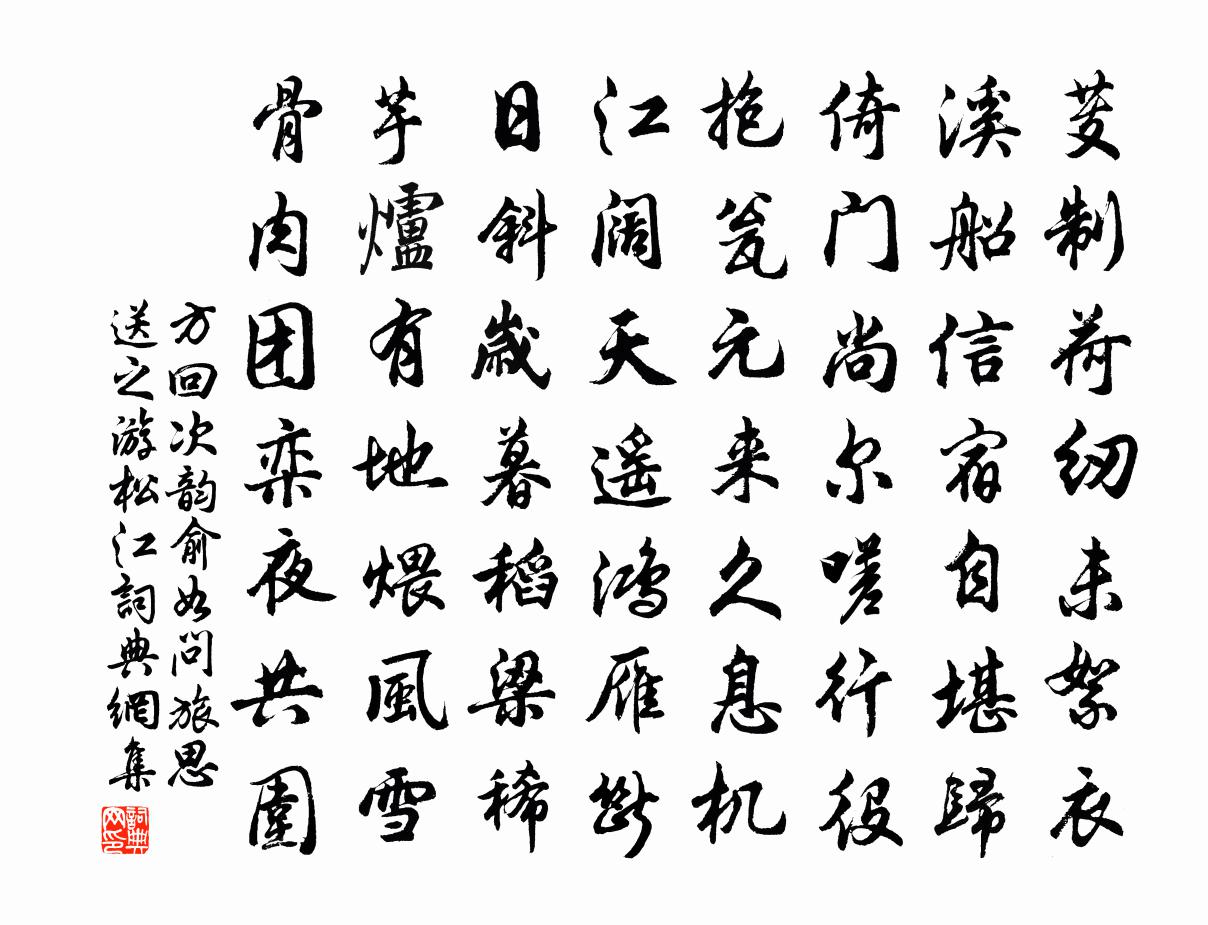 芰制荷纫未絮衣
溪船信宿自堪歸
倚门尚尔嗟行役
抱瓮元来久息机
江阔天遥鸿雁断
日斜歲暮稻粱稀
芋爐有地煨風雪
骨肉团栾夜共圍
方回次韵俞如问旅思
送之游松江詞典網集
詞典网印